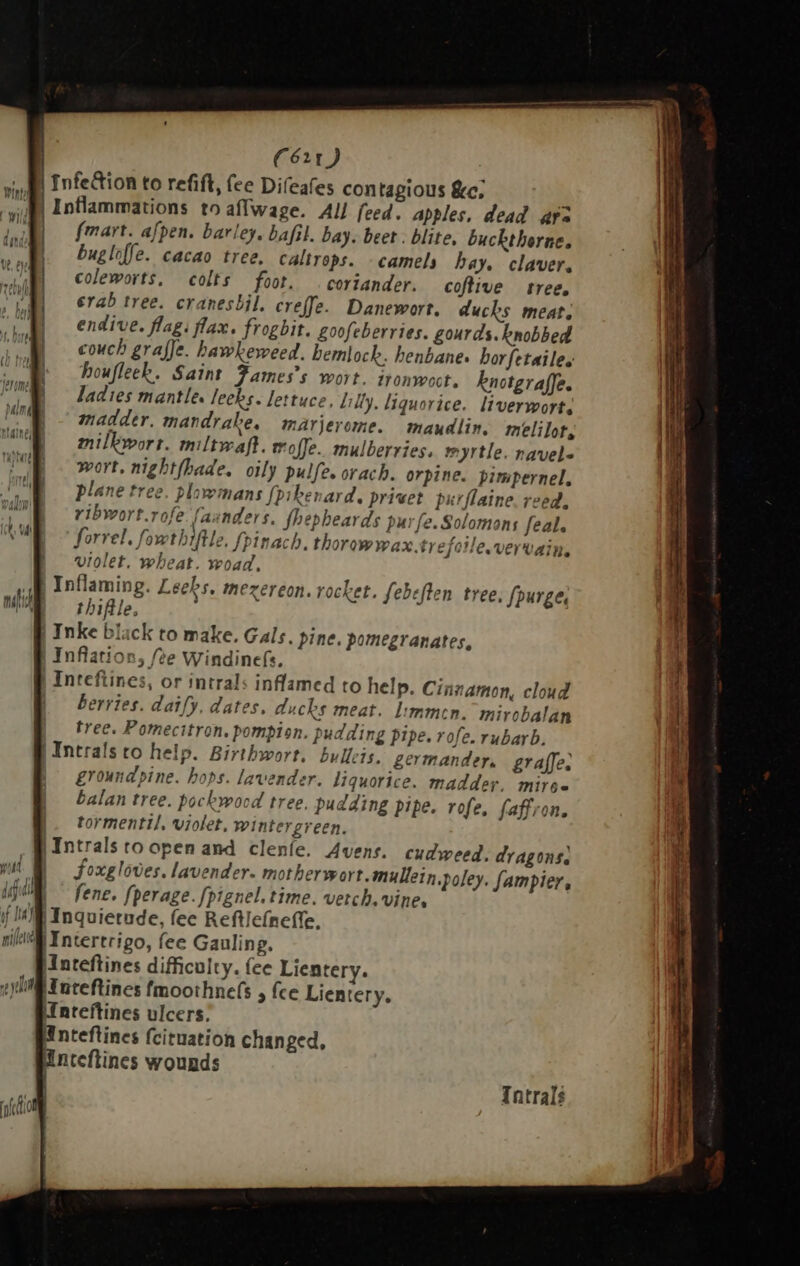 (621)
Infection to resist, see Diseases contagious &c.
Inflammations to asswage. All seed. apples. dead ar-
smart. aspen. barley. basil. bay. beet. blite. buckthorne.
buglosse. cacao tree. caltrops. camels hay. claver.
coleworts. colts foot. coriander. costive tree.
crab tree. cranesbil. cresse. Danewort. ducks meat.
endive. flag. flax. frogbit. gooseberries. gourds. knobbed
couch grasse. hawkeweed. hemlock. henbane. horsetaile.
housleek. Saint James's wort. ironwoot. knotgrasse.
ladies mantle. leeks. lettuce. lilly. liquorice. liverwort.
madder. mandrake. marjerome. maudlin. melilot.
milkwort. miltwast. mosse. mulberries. myrtle. navel-
wort. nightshade. oily pulse. orach. orpine. pimpernel.
plane tree. plowmans spikenard. privet purslaine. reed.
ribwort. rose saunders. shepheards purse. Solomons seal.
sorrel. sowthistle. spinach. thorowwax. trefoile. vervain.
violet. wheat. woad.
Inflaming. Leeks. mezereon. rocket. sebesten tree. spurge.
thistle.
Inke black to make. Gals. pine. pomegranates.
Inflation, see Windiness.
Intestines, or intrals inflamed to help. Cinnamon, cloud
berries. daisy. dates. ducks meat. limmon. mirobalan
tree. Pomecitron. pompion. pudding pipe. rose. rubarb.
Intrals to help. Birthwort. bulleis. germander. grasse.
groundpine. hops. lavender. liquorice. madder. miro-
balan tree. pockwood tree. pudding pipe. rose. saffron.
tormentil. violet. wintergreen.
Intrals to open and clense. Avens. cudweed. dragons.
foxgloves. lavender. motherwort. mullein. poley. sampier.
sene. sperage. spignel. time. vetch. vine.
Inquietude, see Restlesnesse.
Intertrigo, see Gauling.
Intestines difficulty. see Lientery.
Intestines smoothness, see Lientery.
Intestines ulcers.
Intestines scituation changed.
Intestines wounds
Intrals